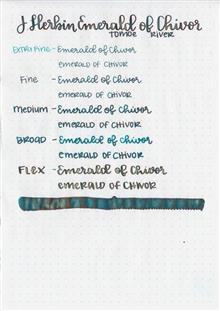 J Herbin Emerald of Chivor
TOMOE RIVER
EXTRA FINE - Emerald of Chivor
EMERALD OF CHIVOR
FINE - Emerald of Chivor
EMERALD OF CHIVOR
MEDIUM - Emerald of Chivor
EMERALD OF CHIVOR
BROAD - Emerald of Chivor
EMERALD OF CHIVOR
FLEX - Emerald of Chivor
EMERALD OF CHIVOR